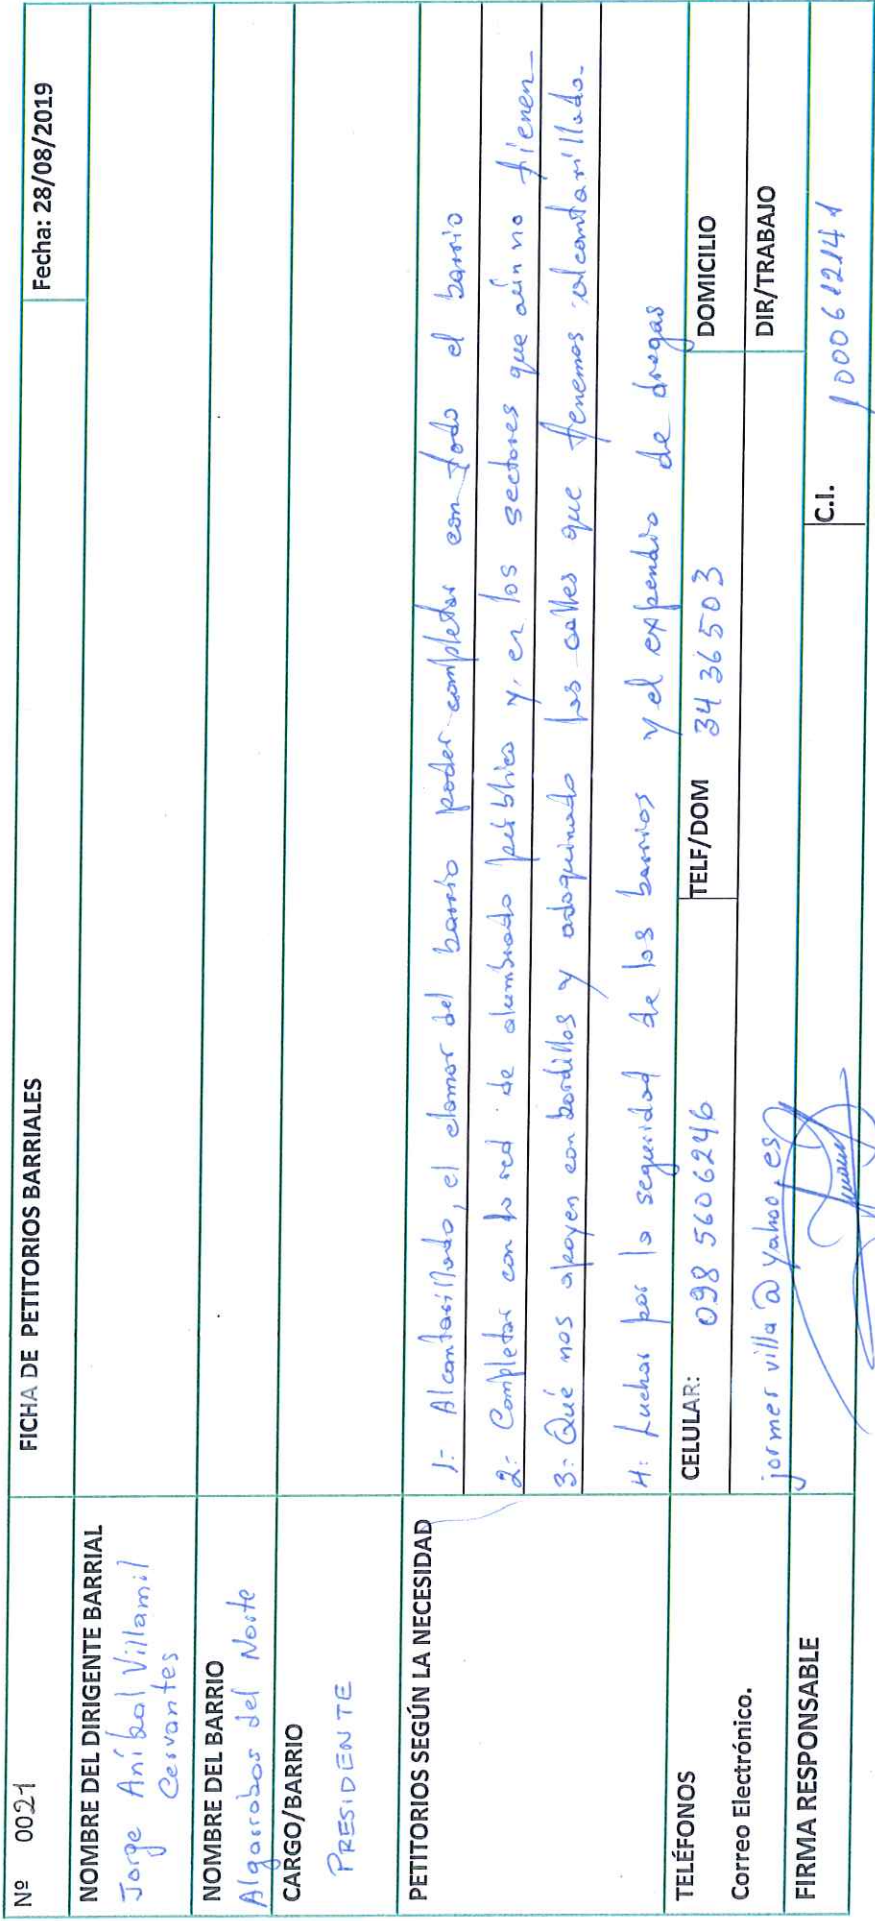 Nº 0021
FICHA DE PETITORIOS BARRIALES
Fecha: 28/08/2019
NOMBRE DEL DIRIGENTE BARRIAL
Jorge Aníbal Villamil
Cervantes
NOMBRE DEL BARRIO
Algarrobos del Norte
CARGO/BARRIO
PRESIDENTE
PETITORIOS SEGÚN LA NECESIDAD
1:- Alcantarillado, el clamor del barrio poder completar con todo el barrio
2:- Completar con la red de alumbrado público y, en los sectores que aún no tienen-
3:- Qué nos apoyen con bordillos y adoquinado las calles que tenemos alcantarillado-
4: Luchar por la seguridad de los barrios y el expendio de drogas
TELÉFONOS
CELULAR: 098 5606246
TELF/DOM 3436503
DOMICILIO
Correo Electrónico.
jormer villa @ yahoo, es
DIR/TRABAJO
FIRMA RESPONSABLE
C.I. 1000612141